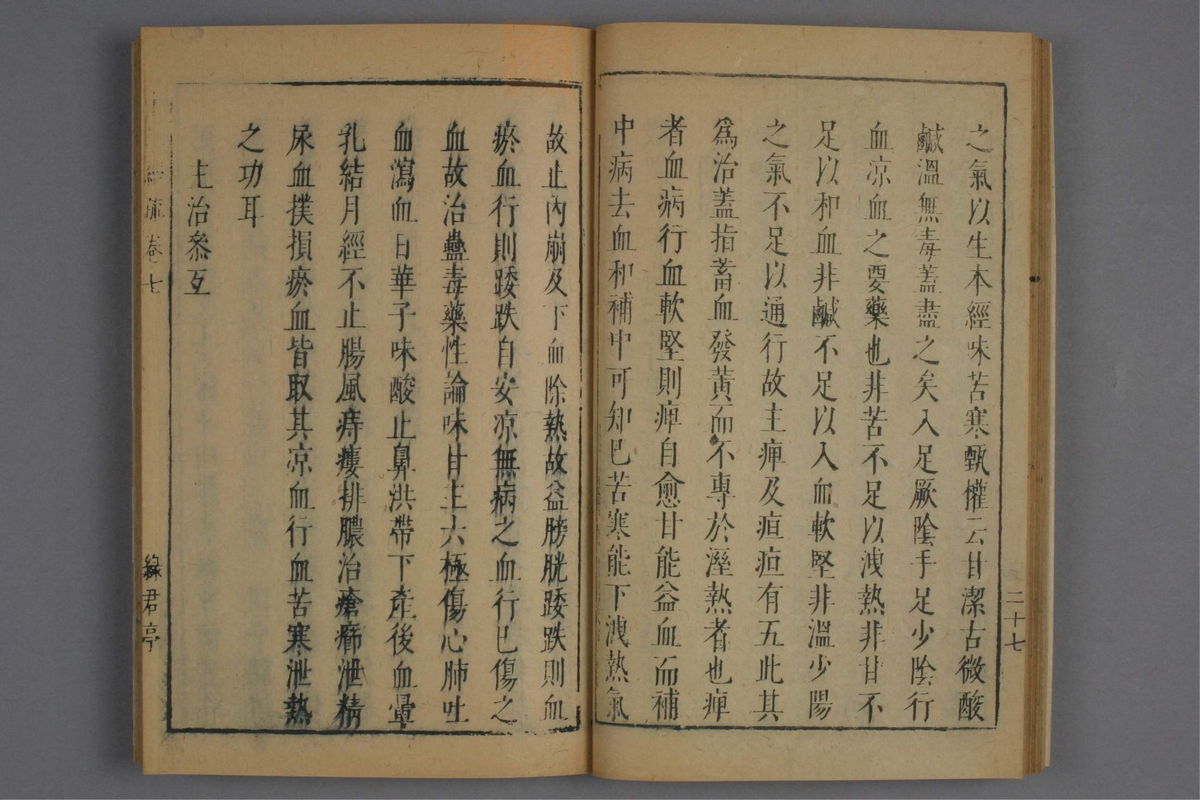 之氣以生本經味苦寒甄權云甘潔古微酸
鹹溫無毒蓋盡之矣入足厥陰手足少陰行
血凉血之要藥也非苦不足以洩熱非甘不
足以和血非鹹不足以入血軟堅非溫少陽
之氣不足以通行故主痺及疸疸有五此其
為治蓋指蓄血發黃而不專於溼熱者也痺
者血病行血軟堅則痺自愈甘能益血而補
中病去血和補中可知巳苦寒能下洩熱氣
二十七
故止內崩及下血除熱故益膀胱踒跌則血
瘀血行則踒跌自安凉無病之血行巳傷之
血故治蠱毒藥性論味甘主六極傷心肺吐
血瀉血日華子味酸止鼻洪帶下產後血暈
乳結月經不止腸風痔瘻排膿治瘡癤泄精
尿血撲損瘀血皆取其凉血行血苦寒泄熱
之功耳
主治叅互
經疏卷七
綠君亭